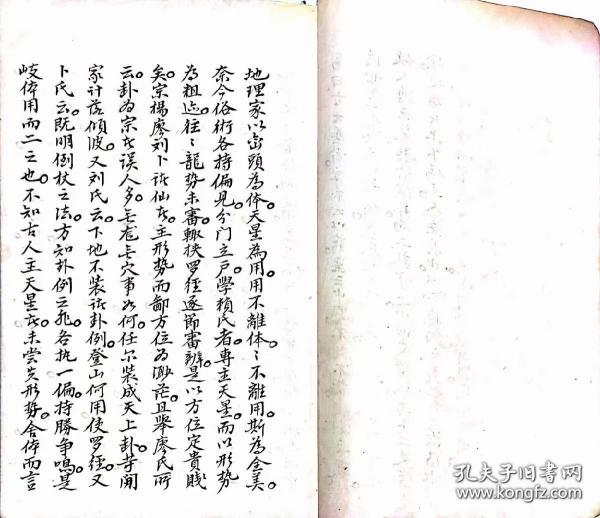 地理家以峦頭為体。天星為用。用不離体。〻不離用。斯為全美。
奈今俗術各持偏見。分门立戸。學頼氏者。專主天星。而以形勢
為粗迹。往〻龍勢未審。輙挟罗徑逐節審辨。是以方位定貴賤
矣。宗楊廖刘卜诸仙者。主形勢而鄙方位為渺茫。且舉廖氏所
云。卦为宗者误人多。无龙无穴事如何。任尔装成天上卦。等闲
家计落傾波。又刘氏云。下地不装诸卦例。登山何用使罗徑。又
卜氏云。既明倒杖之法。方知卦例云非。各执一偏。持勝争鳴。是
岐体用而二之也。不知古人主天星者。未尝失形勢舍体而言
孔夫子旧书网
www.kongfz.com